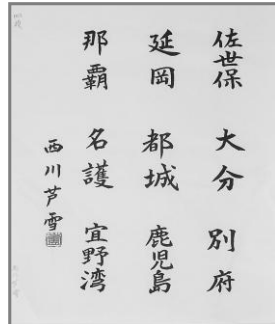 佐世保 大分 別府
延岡 都城 鹿児島
那覇 名護 宜野湾
西川芦雪